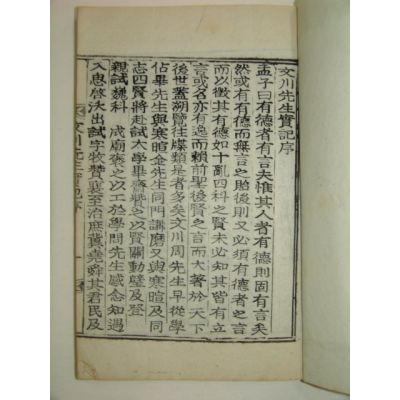 文川先生實記序
孟子曰有德者有言夫惟其人者有德則固有言矣
然或有有德而無言之貽後則又必須有德者之言
而以徵其有德如十亂四科之賢未必知其皆有立
言或名亦有逸而賴前聖後賢之言而大著於天下
後世蓋朔覽往牒類是者多矣文川周先生早從學
佔畢先生與寒暄金先生同門講磨又與寒暄及同
志四賢將赴試太學畢齋以賢關動壁及登
親試魏科 成廟褒之以工於學問先生感念知遇
入息啓沃出試字牧贊襄至治庶冀堯舜其君民及
文川先生實記序 一